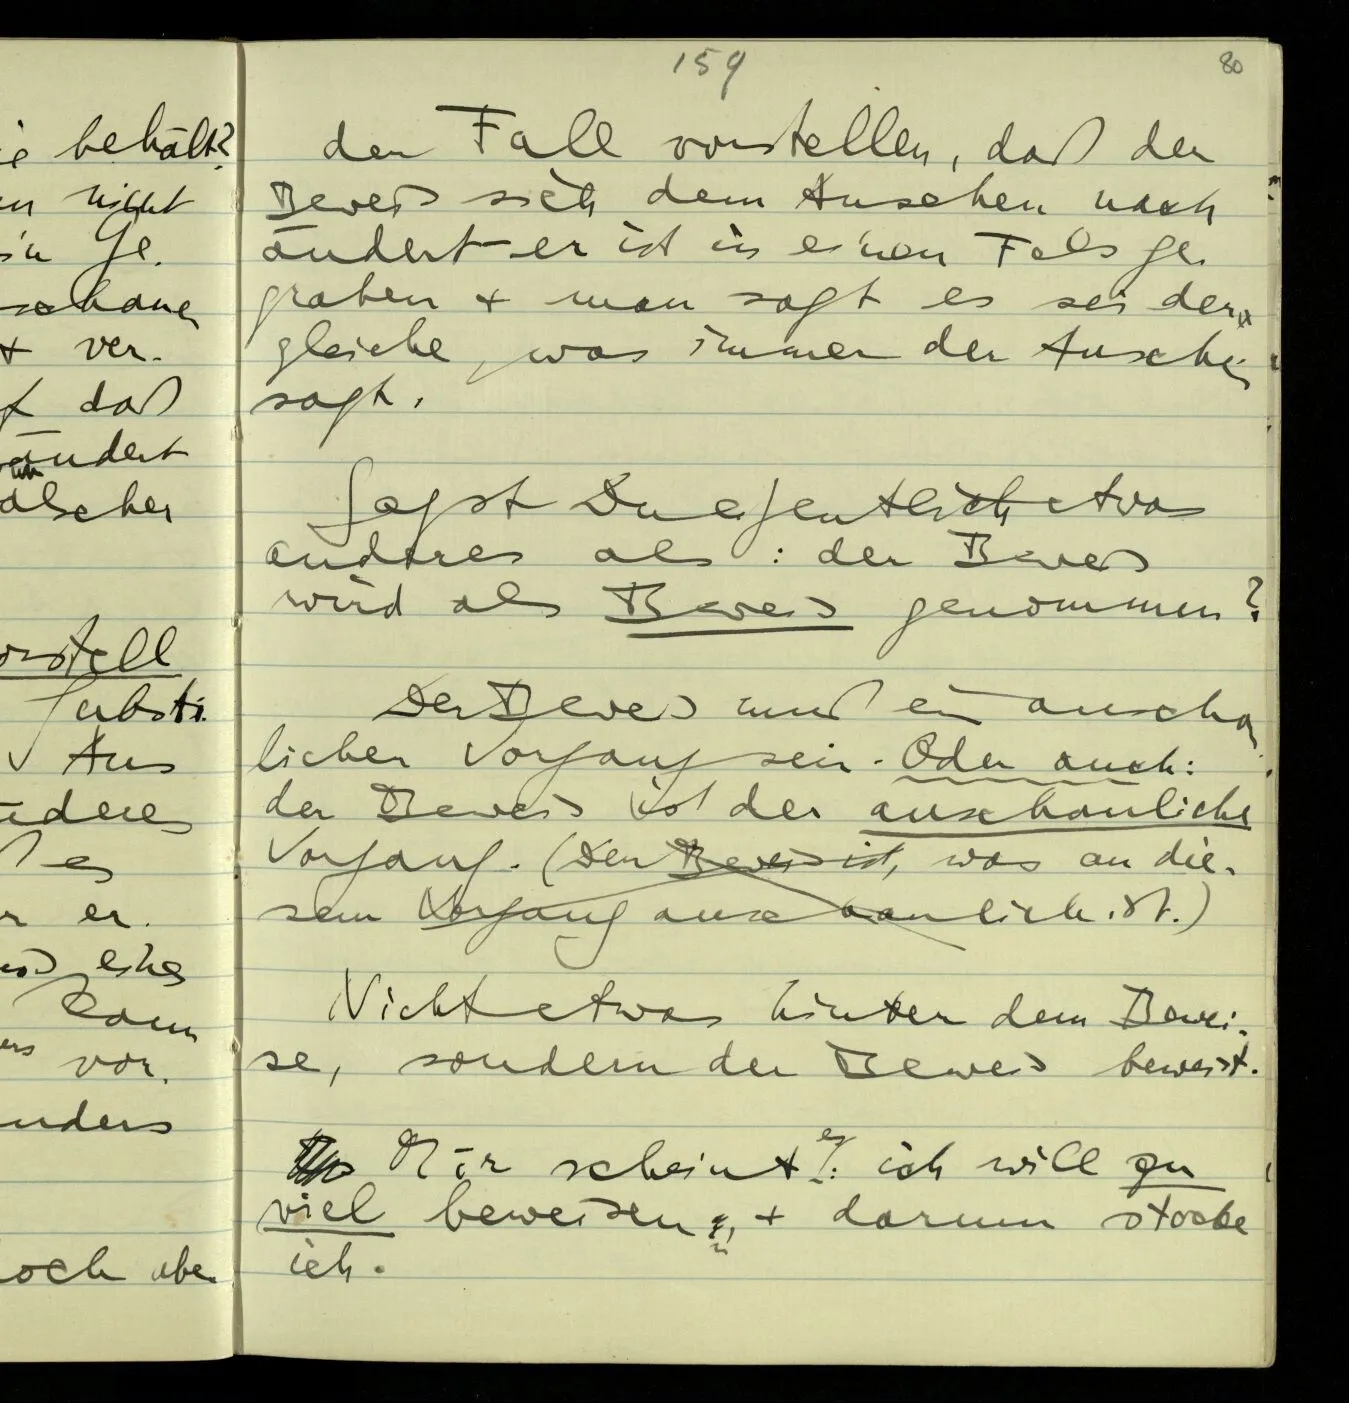 159
80
den Fall vorstellen, daß der
Beweis sich dem Ansehen nach
ändert – er ist in einen Fels ge-
graben + man sagt es sei der
gleiche, was immer der Anschein
sagt.
Sagst Du eigentlich etwas
anderes als: der Beweis
wird als Beweis genommen?
Der Beweis muß ein anschau
licher Vorgang sein. Oder auch:
der Beweis ist der anschauliche
Vorgang. (Der Beweis ist, was an die-
sem Vorgang anschaulich ist.)
Nicht etwas hinter dem Bewei-
se, sondern der Beweis beweist.
Mir scheint es: ich will zu
viel beweisen, + darum stocke
ich.
ie behält?
en nicht
in Ge-
+ ver-
daß
ändert
orstell
Substi-
Aus
andere
es
r er
eines
kann
vor
anders
noch aber